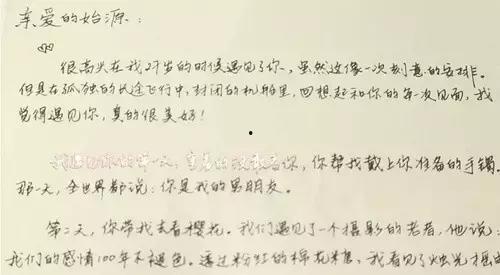 亲爱的始源:
很高兴在我27岁的时候遇见了你,虽然这像一次刻意的安排。
但是在孤独的长途飞行中,封闭的机舱里,回想起和你的每一次见面,我
觉得遇见你,真的很美好!
我遇见你的第一天,你,你帮我戴上你准备的手镯
那一天,全世界都说:你是我的男朋友。
第二天,你带我去看樱花。我们遇见了一个摄影的老者,他说:
我们的感情100年不褪色。透过粉红的棉花糖,我看见了